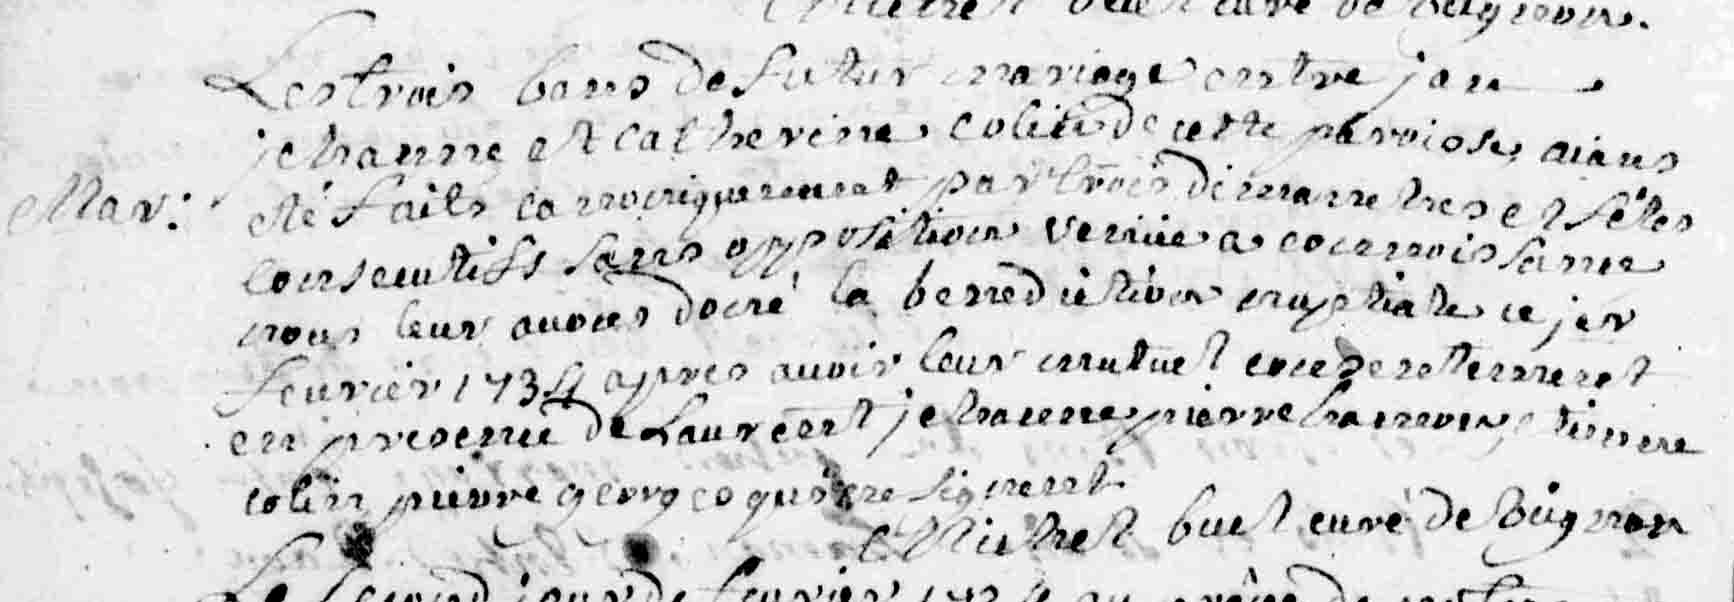 Michel buel curé de Buignon.
Les trois bans de futur mariage entre jan
jehanne et Catherine colin de cette paroisse, aians
Mar: été faits canoniquement par trois dimanches et fêtes
consecutifs sans opposition venüe a connoissance
nous leur avons doné la benediction nuptiale ce jer
feuvrier 1734 apres avoir leur mutuel consentement
en presence de Laurent jehanne, pierre hamon, etienne
colin, pierre george qui ne signent
Michel buel curé de Buignon
Le second jour de feuvrier 1734